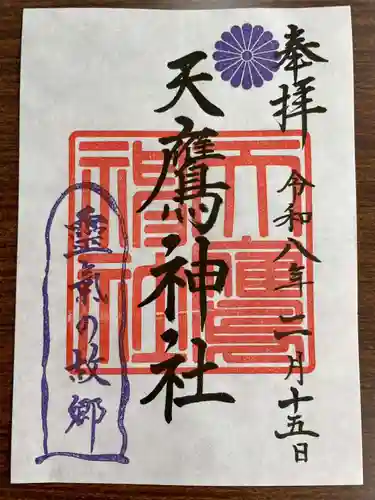 奉拝
令和八年二月十五日
天鷹神社
靈氣の故郷
天鷹神社